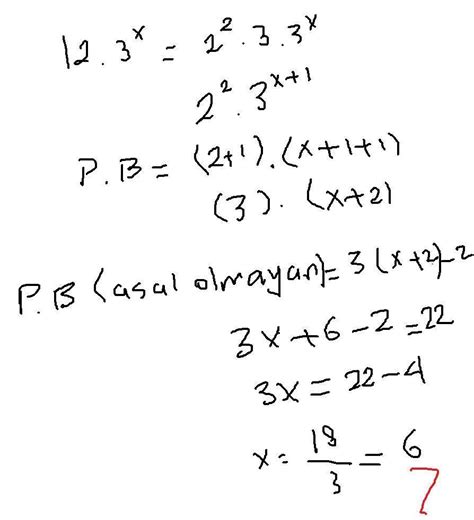 12 . 3ˣ = 2² . 3 . 3ˣ
2² . 3ˣ⁺¹
P.B = (2+1) . (x+1+1)
(3) . (x+2)
P.B (asal olmayan) = 3(x+2)-2
3x+6-2=22
3x = 22-4
x = 18/3 = 6
7